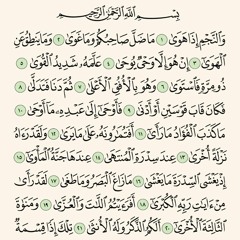 بِسْمِ اللَّهِ الرَّحْمَٰنِ الرَّحِيمِ
وَالنَّجْمِ إِذَا هَوَىٰ ١ مَا ضَلَّ صَاحِبُكُمْ وَمَا غَوَىٰ ٢ وَمَا يَنطِقُ عَنِ
الْهَوَىٰ ٣ إِنْ هُوَ إِلَّا وَحْيٌ يُوحَىٰ ٤ عَلَّمَهُ شَدِيدُ الْقُوَىٰ ٥
ذُو مِرَّةٍ فَاسْتَوَىٰ ٦ وَهُوَ بِالْأُفُقِ الْأَعْلَىٰ ٧ ثُمَّ دَنَا فَتَدَلَّىٰ ٨
فَكَانَ قَابَ قَوْسَيْنِ أَوْ أَدْنَىٰ ٩ فَأَوْحَىٰ إِلَىٰ عَبْدِهِ مَا أَوْحَىٰ ١٠
مَا كَذَبَ الْفُؤَادُ مَا رَأَىٰ ١١ أَفَتُمَارُونَهُ عَلَىٰ مَا يَرَىٰ ١٢ وَلَقَدْ رَآهُ
نَزْلَةً أُخْرَىٰ ١٣ عِندَ سِدْرَةِ الْمُنتَهَىٰ ١٤ عِندَهَا جَنَّةُ الْمَأْوَىٰ ١٥
إِذْ يَغْشَى السِّدْرَةَ مَا يَغْشَىٰ ١٦ مَا زَاغَ الْبَصَرُ وَمَا طَغَىٰ ١٧ لَقَدْ رَأَىٰ
مِنْ آيَاتِ رَبِّهِ الْكُبْرَىٰ ١٨ أَفَرَأَيْتُمُ اللَّاتَ وَالْعُزَّىٰ ١٩ وَمَنَاةَ
الثَّالِثَةَ الْأُخْرَىٰ ٢٠ أَلَكُمُ الذَّكَرُ وَلَهُ الْأُنثَىٰ ٢١ تِلْكَ إِذًا قِسْمَةٌ